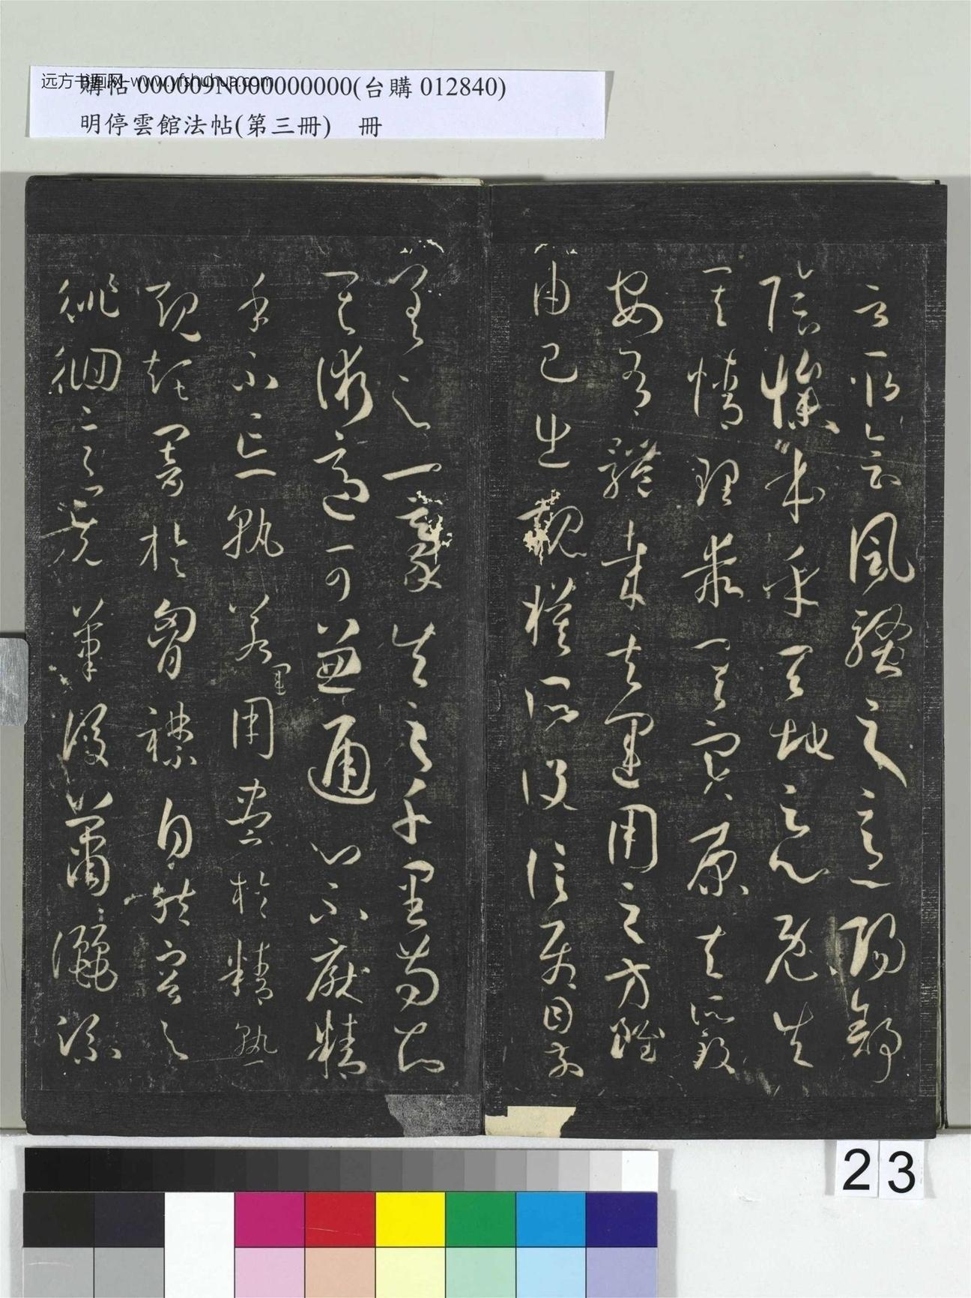 远方书画网-www.yfshuhua.com
購帖 000009N000000000(台購 012840)
明停雲館法帖(第三冊) 冊
言取會風騷之意陽舒
陰慘本乎天地之心既失
其情理乖其實原夫所致
安有體哉夫運用之方雖
由己出規模所設信屬目前
差之一豪失之千里苟知
其術適可兼通心不厭精
手不忘熟若運用盡於精熟
規矩闇於胷襟自然容與
徘徊意先筆後瀟灑流
23